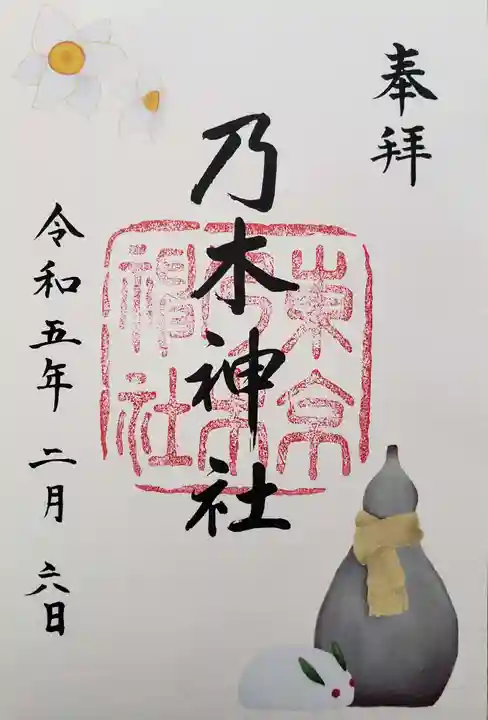 奉拝
乃木神社
東京
乃木
神社
令和五年 二月 六日